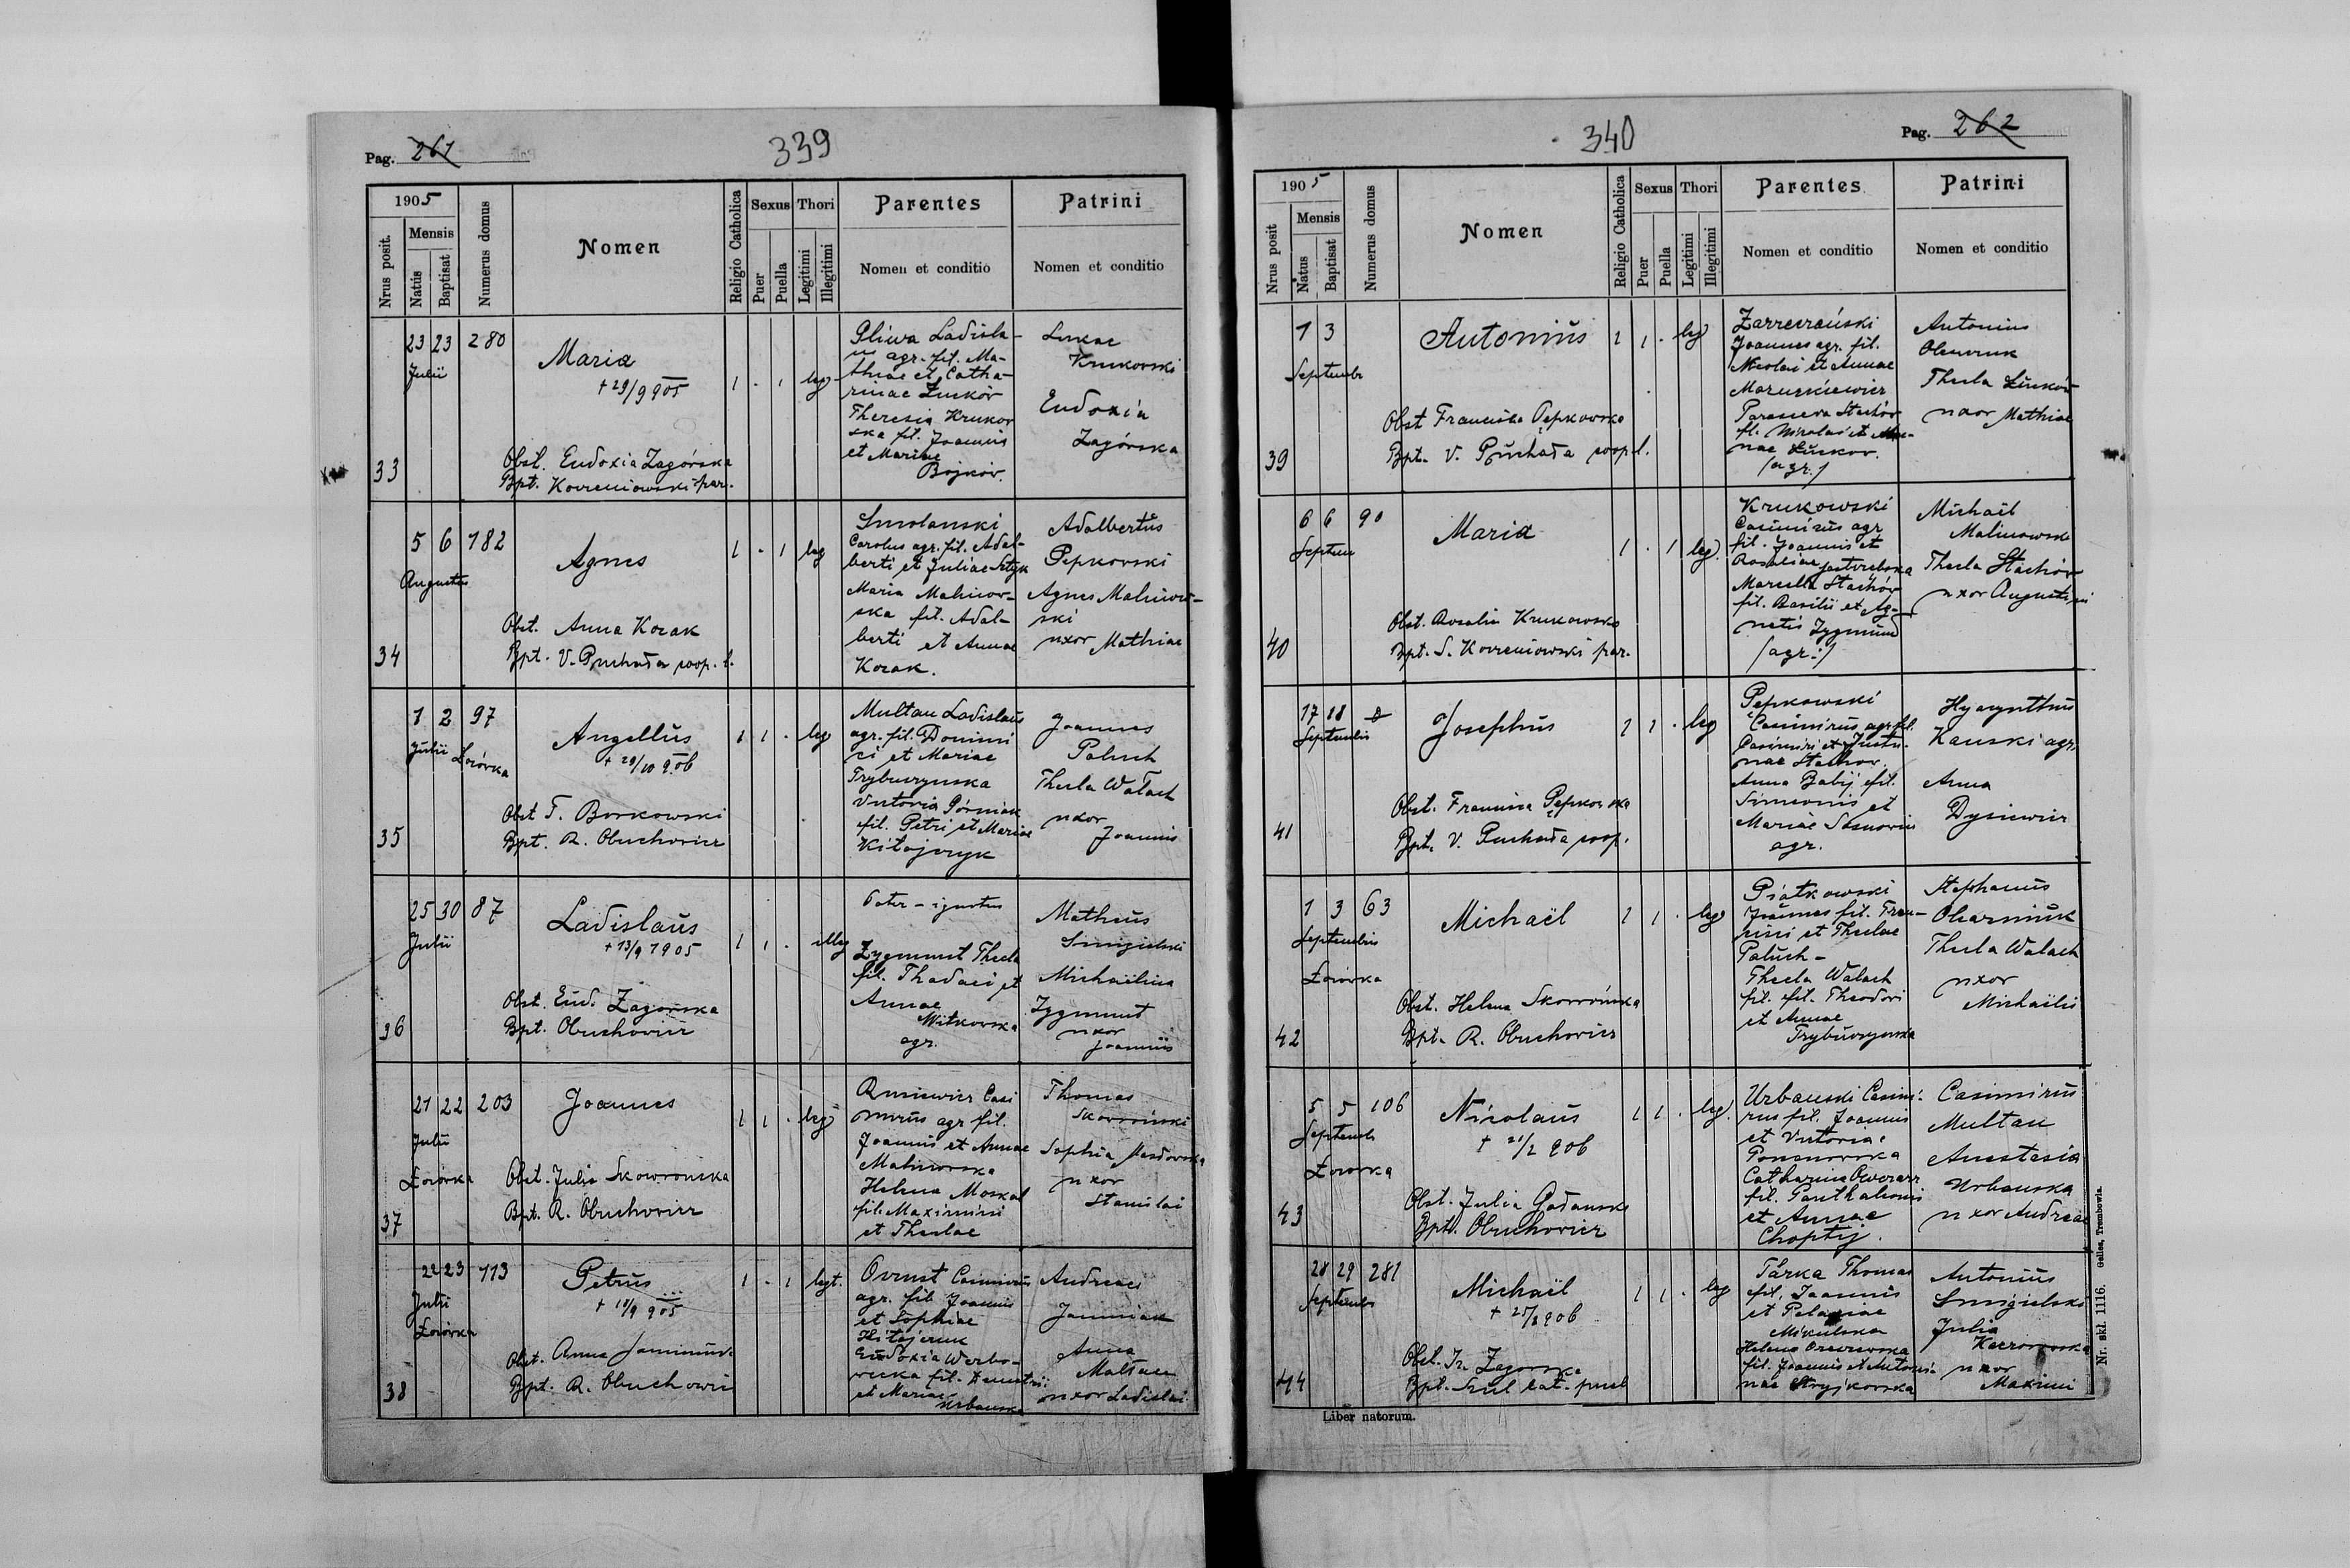 Pag. 261
339
1905
Nrus posit.
Mensis
Natus
Baptisat
Numerus domus
Nomen
Religio Catholica
Sexus
Puer
Puella
Thori
Legitimi
Illegitimi
Parentes
Nomen et conditio
Patrini
Nomen et conditio
33
23 23 280
Julii
Maria
+ 29/9 905
Obst. Eudoxia Zagórska
Bpt. Korreniowski par.
1 - 1 leg
Gliwa Ladisla-
us agr. fil. Ma-
thiae et Catha-
rinae Zuków
Theresia Krukow
ska fil. Joannis
et Mariae
Bojków.
Lucae
Krukovski
Eudoxia
Zagórska
34
5 6 182
Augustus
Agnes
Obst. Anna Kozak
Bpt. V. Puchała coop. l.
1 - 1 leg
Smolanski
Carolus agr. fil. Adal-
berti et Juliae
Maria Malinow-
ska fil. Adal-
berti et Annae
Kozak.
Adalbertus
Pepkovski
Agnes Malinow-
ski
uxor Mathiae
35
1 2 97
Julii Łoiówka
Angellus
+ 29/10 906
Obst T. Borkowski
Bpt. R. Obuchowicz
1 1 - leg
Multan Ladislaus
agr. fil. Domini
ci et Mariae
Tryburzynska
Victoria Górniak
fil. Petri et Mariae
Kitajczyk
Joannes
Paluch
Thecla Wałach
uxor
Joannis
36
25 30 87
Julii
Ladislaus
+ 13/9 1905
Obst. Eud. Zagorska
Bpt. Obuchowicz
1 1 - illeg
Pater - ignotus
Zygmunt Thecla
fil. Thadaei et
Annae
Witkowska
agr.
Matheus
Smigielski
Michaëlina
Zygmunt
uxor
Joannis
37
21 22 203
Julii
Łoiówka
Joannes
Obst. Julia Skowronska
Bpt. R. Obuchowicz
1 1 - leg
Casi
mirus agr fil.
Joannis et Annae
Malinowska
Helena Moskal
fil. Maximini
et Theclae
Thomas
Skowronski
Sophia
uxor
Stanislai
38
22 23 113
Julii
Łoiówka
Petrus
+ 18/9 905
Obst. Anna
Bpt. R. Obuchowicz
1 - 1 legt.
Casimirus
agr. fil. Joannis
et Sophiae
Kitajczuk
Eudoxia Werbo-
wecka fil. Demetrii
et Mariae
Urbanska
Andreas
Janiniak
Anna
Multan
uxor Ladislai
340
Pag. 262
1905
Nrus posit
Mensis
Natus
Baptisat
Numerus domus
Nomen
Religio Catholica
Sexus
Puer
Puella
Thori
Legitimi
Illegitimi
Parentes
Nomen et conditio
Patrini
Nomen et conditio
39
1 3
Septembr
Antonius
Obst Francisca Pepkowska
Bpt. V. Puchała coop l.
1 1 - leg
Joannes agr. fil.
Nicolai et Annae
Paraseva Stachów
fil. Nicolai et
nae Zuków.
/agr./
Antonius
Thecla Zuków
uxor Mathiae
40
6 6 90
Septem
Maria
Obst. Rosalia Krukowska
Bpt. S. Korreniowski par.
1 - 1 leg.
Krukowski
Casimirus agr
fil. Joannis et
Rosaliae Jastrubska
Marcella Stachów
fil. Basilii et Ag-
netis Zygmunt
/agr./
Michaël
Malinowski
Thecla Stachów
uxor Augustini
41
17 18
Septembis
Josephus
Obst. Francisca Pepkowska
Bpt. V. Puchała coop.
1 1 - leg
Pepkowski
Casimirus agr fil.
Casimiri et Justi-
nae Stachow.
Anna Babij fil.
Simeonis et
Mariae
agr.
Hyacynthus
Kanski agr.
Anna
Dysiewicz
42
1 3 63
Septembris
Łoiówka
Michaël
Obst. Helena Skowrónska
Bpt. R. Obuchowicz
1 1 - leg
Piatkowski
Joannes fil. Fran-
cisci et Theclae
Paluch -
Thecla Wałach
fil. fil. Theodori
et Annae
Tryburzynska
Stephanus
Thecla Walach
uxor
Michaëlis
43
5 5 106
Septemb
Łoiowka
Nicolaus
+ 21/2 906
Obst. Julia Gadanska
Bpt. Obuchowicz
1 1 - leg.
Urbanski Casimi-
rus fil. Joannis
et Victoriae
Catharina
fil. Panthaleonis
et Annae
Choptij.
Casimirus
Multan
Anastasia
Urbanska
uxor Andreae
44
28 29 281
Septembr
Michaël
+ 25/8 906
Obst. Zagorska
Bpt.
1 1 - leg
Tarka Thomas
fil. Joannis
et Pelagiae
Mikulska
Helena
fil. Joannis et Antoni-
nae Stryjkowska
Antonius
Smigielski
Julia
Kaczorowska
uxor
Maximi
Liber natorum.
Nr. skł. 1116.
Trembowla.